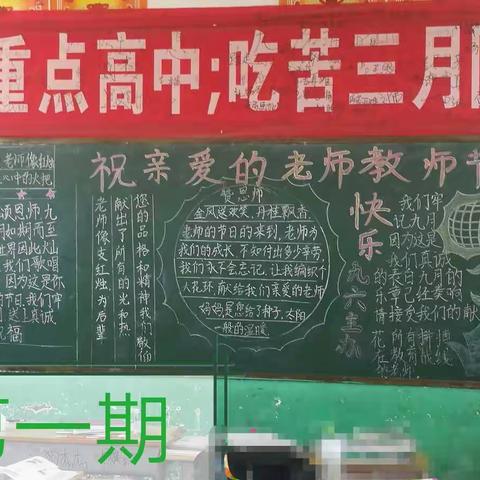 重点高中;吃苦三月
祝亲爱的老师教师节
快乐
九六主办
老师像红烛
心中的火把
颂恩师九
月如期而至
世界因此灿
我们歌唱
因为这是你
的节日我们牢
送上真诚
祝福
老师像支红烛为后辈
献出了所有的光和热
您的品格和精神我们敬仰
赞恩师
金风送欢笑,丹桂飘香
老师的节日的来到,老师为
我们的成长,不知付出多少辛劳
我们永不会忘记,让我编织个
大花环,献给我们亲爱的老师
妈妈是您给了种子,太阳
一般的温暖
我们牢
记九月
因为这是
我们真诚
的表白九月的
请接受我们的献
花
第一期